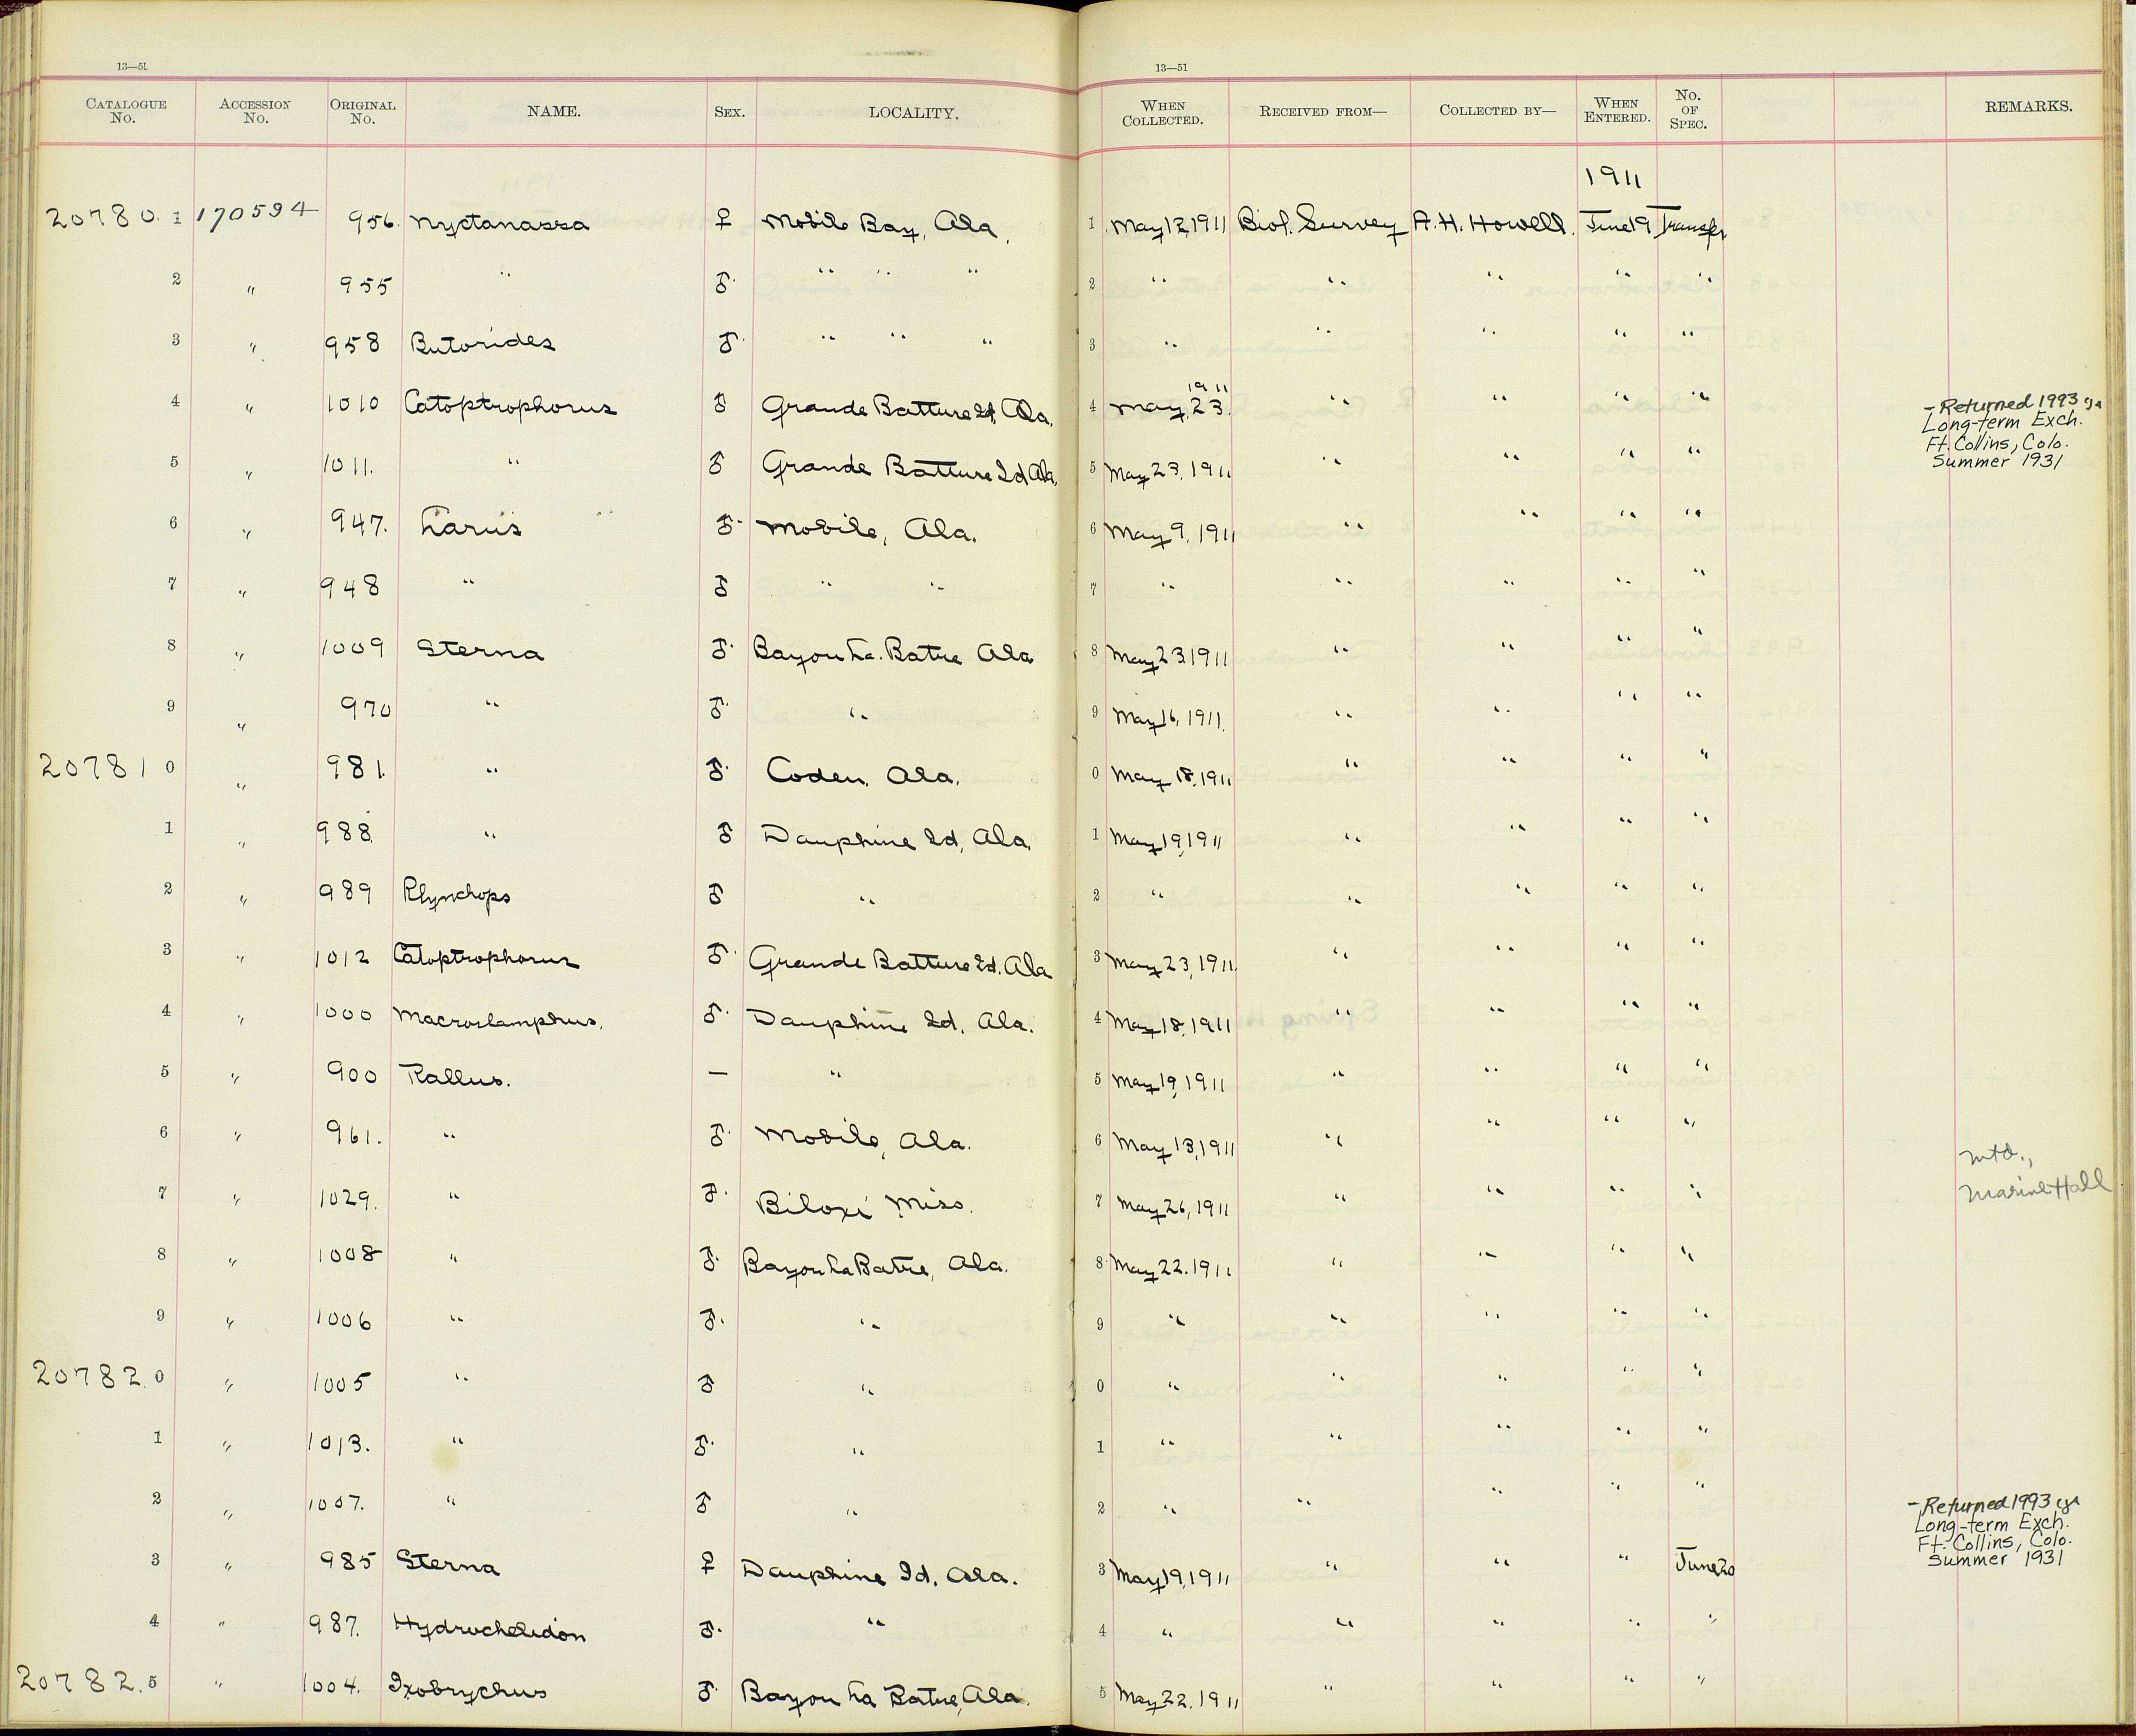 13—51
13—51
CATALOGUE No. ACCESSION No. ORIGINAL No. NAME. SEX. LOCALITY. WHEN COLLECTED. RECEIVED FROM— COLLECTED BY— WHEN ENTERED. No. OF SPEC. REMARKS.
1911
20780. 1 170594 956. Nyctanassa ♀ Mobile Bay, Ala. 1 May 12, 1911 Biol. Survey A. H. Howell. June 19 Transfer
2 " 955 " ♂. " " " 2 " " " " "
3 " 958 Butorides ♂. " " " 3 " " " " "
4 " 1010 Catoptrophorus ♂ Grande Batture Id, Ala. 4 May, 23. 1911 " " " " - Returned 1993
Long-term Exch.
Ft. Collins, Colo.
Summer 1931
5 " 1011. " ♂ Grande Batture Id Ala. 5 May 23, 1911 " " " "
6 " 947. Larus ♂. Mobile, Ala. 6 May 9, 1911 " " " "
7 " 948 " ♂ " " 7 " " " " "
8 " 1009 Sterna ♂. Bayou La. Batre Ala 8 May 23 1911 " " " "
9 " 970 " ♂. " 9 May 16, 1911. " " " "
20781 0 " 981. " ♂. Coden, Ala. 0 May 18, 1911 " " " "
1 " 988 " ♂ Dauphine Id, Ala. 1 May 19, 1911 " " " "
2 " 989 Rhynchops ♂ " 2 " " " " "
3 " 1012 Catoptrophorus ♂. Grande Batture Id. Ala 3 May 23, 1911. " " " "
4 " 1000 Macroslamphus. ♂. Dauphine Id. Ala. 4 May 18, 1911 " " " "
5 " 900 Rallus. — " 5 May 19, 1911 " " " "
6 " 961. " ♂. Mobile, Ala. 6 May 13, 1911 " " " "
7 " 1029. " ♂. Biloxi Miss. 7 May 26, 1911 " " " " Mtd.,
Marine Hall
8 " 1008 " ♂. Bayou La Batre, Ala. 8 May 22. 1911 " " " "
9 " 1006 " ♂. " 9 " " " " "
20782. 0 " 1005 " ♂ " 0 " " " " "
1 " 1013. " ♂. " 1 " " " " "
2 " 1007. " ♂ " 2 " " " " "
3 " 985 Sterna ♀ Dauphine Id. Ala. 3 May 19, 1911 " " " June 20 - Returned 1993
Long-term Exch.
Ft. Collins, Colo.
Summer 1931
4 " 987. Hydrochelidon ♂. " 4 " " " " "
20782. 5 " 1004. Ixobrychus ♂. Bayou La Batre, Ala. 5 May 22, 1911 " " " "